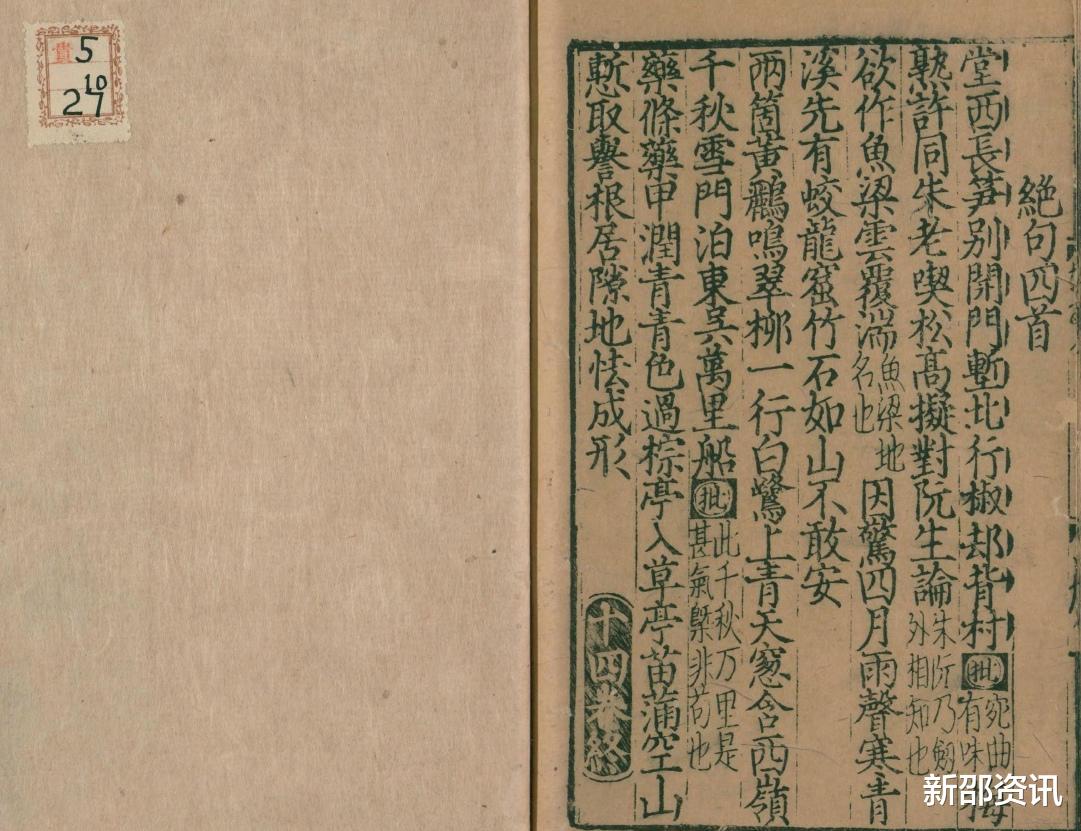 絶句四首
堂西長笋別開門塹北行椒却背村批宛曲有味梅
熟許同朱老喫松髙擬對阮生論朱阮乃劒外相知也
欲作魚梁雲覆湍魚梁地名也因驚四月雨聲寒青
溪先有蛟龍窟竹石如山不敢安
兩箇黃鸝鳴翠柳一行白鷺上青天窓含西嶺
千秋雪門泊東吳萬里船批此千秋万里是甚氣槩非苟也
藥條藥甲潤青青色過棕亭入草亭苗蒲空山
慙取譽根居隙地怯成形
十四卷終
貴
5
10
27
新邵资讯